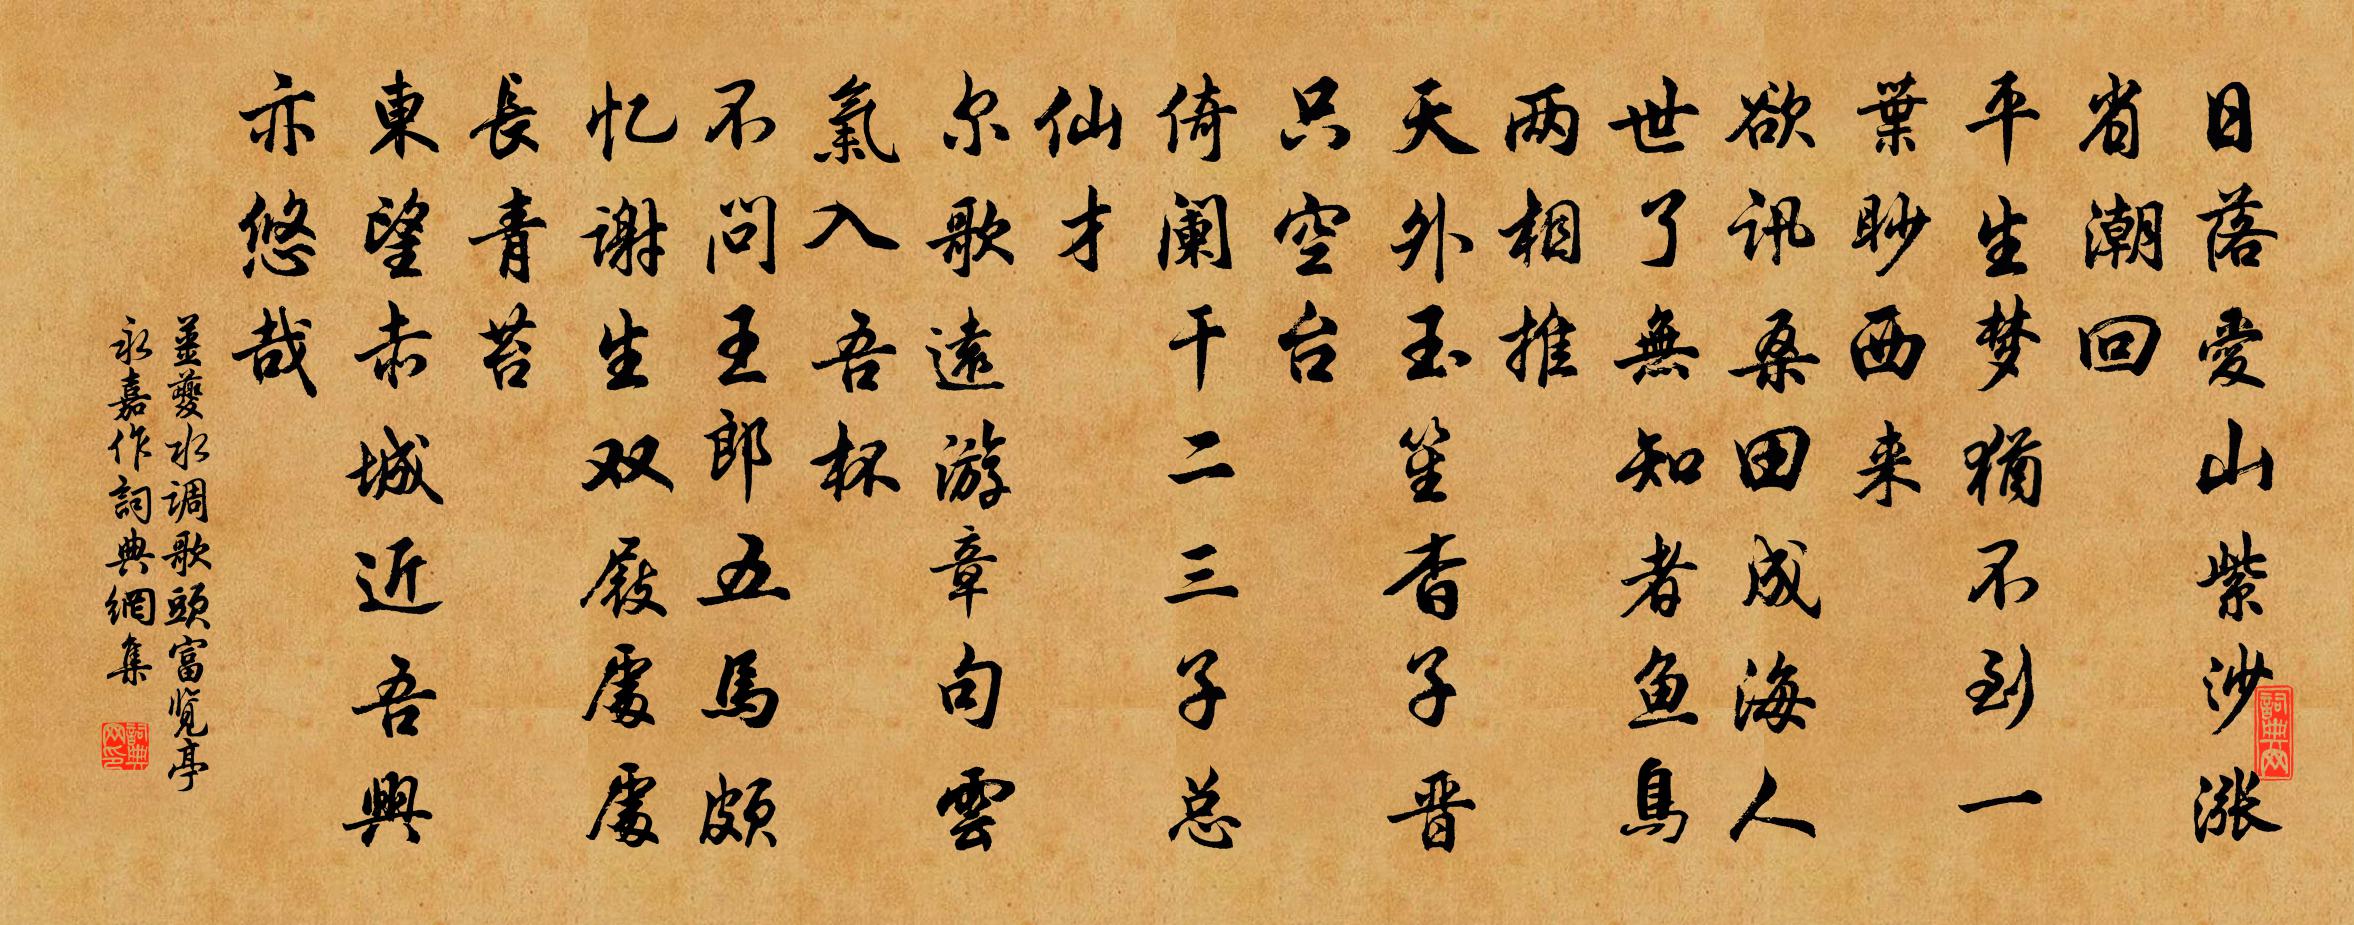 日落愛山紫沙漲
省潮回
平生梦猶不到一
葉眇西来
欲訊桑田成海人
世了無知者鱼鳥
两相推
天外玉笙杳子晋
只空台
倚阑干二三子总
仙才
尔歌遠游章句雲
氣入吾杯
不問王郎五馬頗
忆謝生双屐處處
長青苔
東望赤城近吾興
亦悠哉
姜夔水调歌頭富览亭
永嘉作詞典網集
詞典网
詞典网印